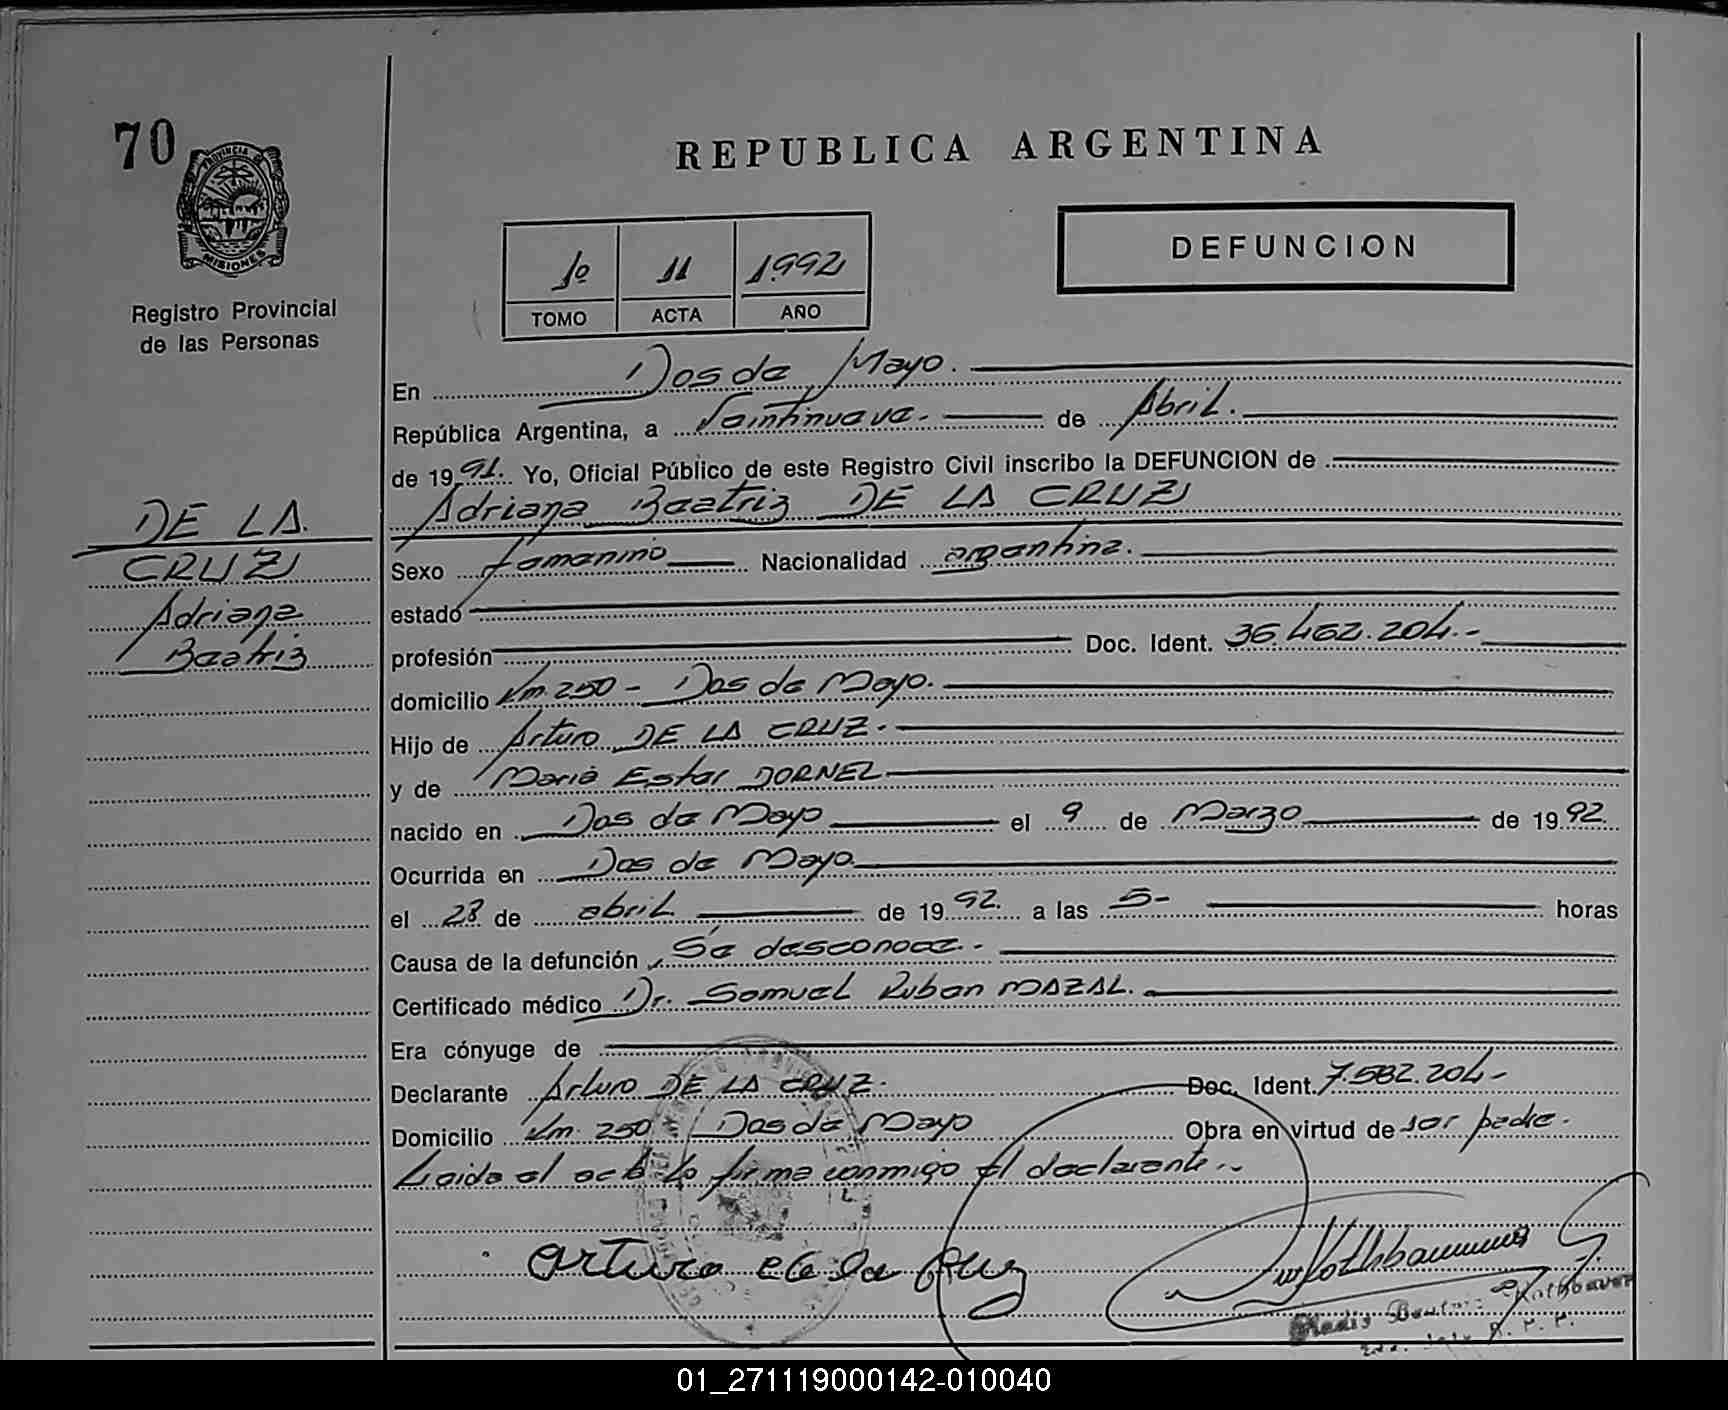 70
PROVINCIA DE
MISIONES
Registro Provincial
de las Personas
REPUBLICA ARGENTINA
DEFUNCION
1º 11 1992
TOMO ACTA AÑO
En Dos de Mayo.
República Argentina, a Veintinueve. de Abril.
de 1991. Yo, Oficial Público de este Registro Civil inscribo la DEFUNCION de
Adriana Beatriz DE LA CRUZ
DE LA
CRUZ
Adriana
Beatriz
Sexo femenino Nacionalidad argentina.
estado
profesión Doc. Ident. 36.462.204.-
domicilio Km. 250 - Dos de Mayo.
Hijo de Arturo DE LA CRUZ.
y de Maria Ester DORNEL
nacido en Dos de Mayo el 9 de Marzo de 1992.
Ocurrida en Dos de Mayo
el 28 de abril de 1992. a las 5- horas
Causa de la defunción Se desconoce.-
Certificado médico Dr. Samuel Ruben MAZAL.
Era cónyuge de
Declarante Arturo DE LA CRUZ. Doc. Ident. 7.582.204-
Domicilio Km. 250 Dos de Mayo Obra en virtud de ser padre.
Leida el acta lo firma conmigo el declarante.-
Arturo de la Cruz
Gladis Beatriz
01_271119000142-010040